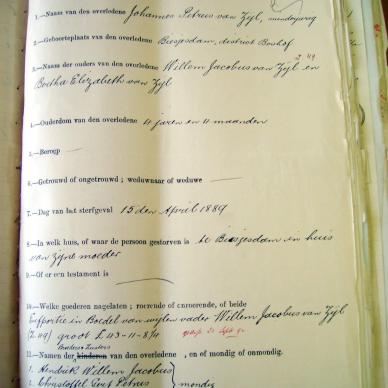 1.—Naam van den overledene Johannes Petrus van Zijl, minderjarig
2.—Geboorteplaats van den overledene Biesjesdam, district Boshof
3.—Namen der ouders van den overledene Willem Jacobus van Zijl en
Z. 49
Botha Elizabeth van Zijl
4.—Ouderdom van den overledene 4 jaren en 11 maanden
5.—Beroep —
6.—Getrouwd of ongetrouwd; weduwnaar of weduwe —
7.—Dag van het sterfgeval 15 den April 1889
8.—In welk huis, of waar de persoon gestorven is te Biesjesdam en huis
van zijne moeder
9.—Of er een testament is —
10.—Welke goederen nagelaten; roerende of onroerende, of beide
Erfportie in Boedel van wijlen vader Willem Jacobus van Zijl
(Z. 49) groot £ 43-11-8¼
Broeders & Zusters
11.—Namen der kinderen van den overledene, en of mondig of onmondig.
1. Hendrik Willem Jacobus
2. Christoffel Petrus } mondig